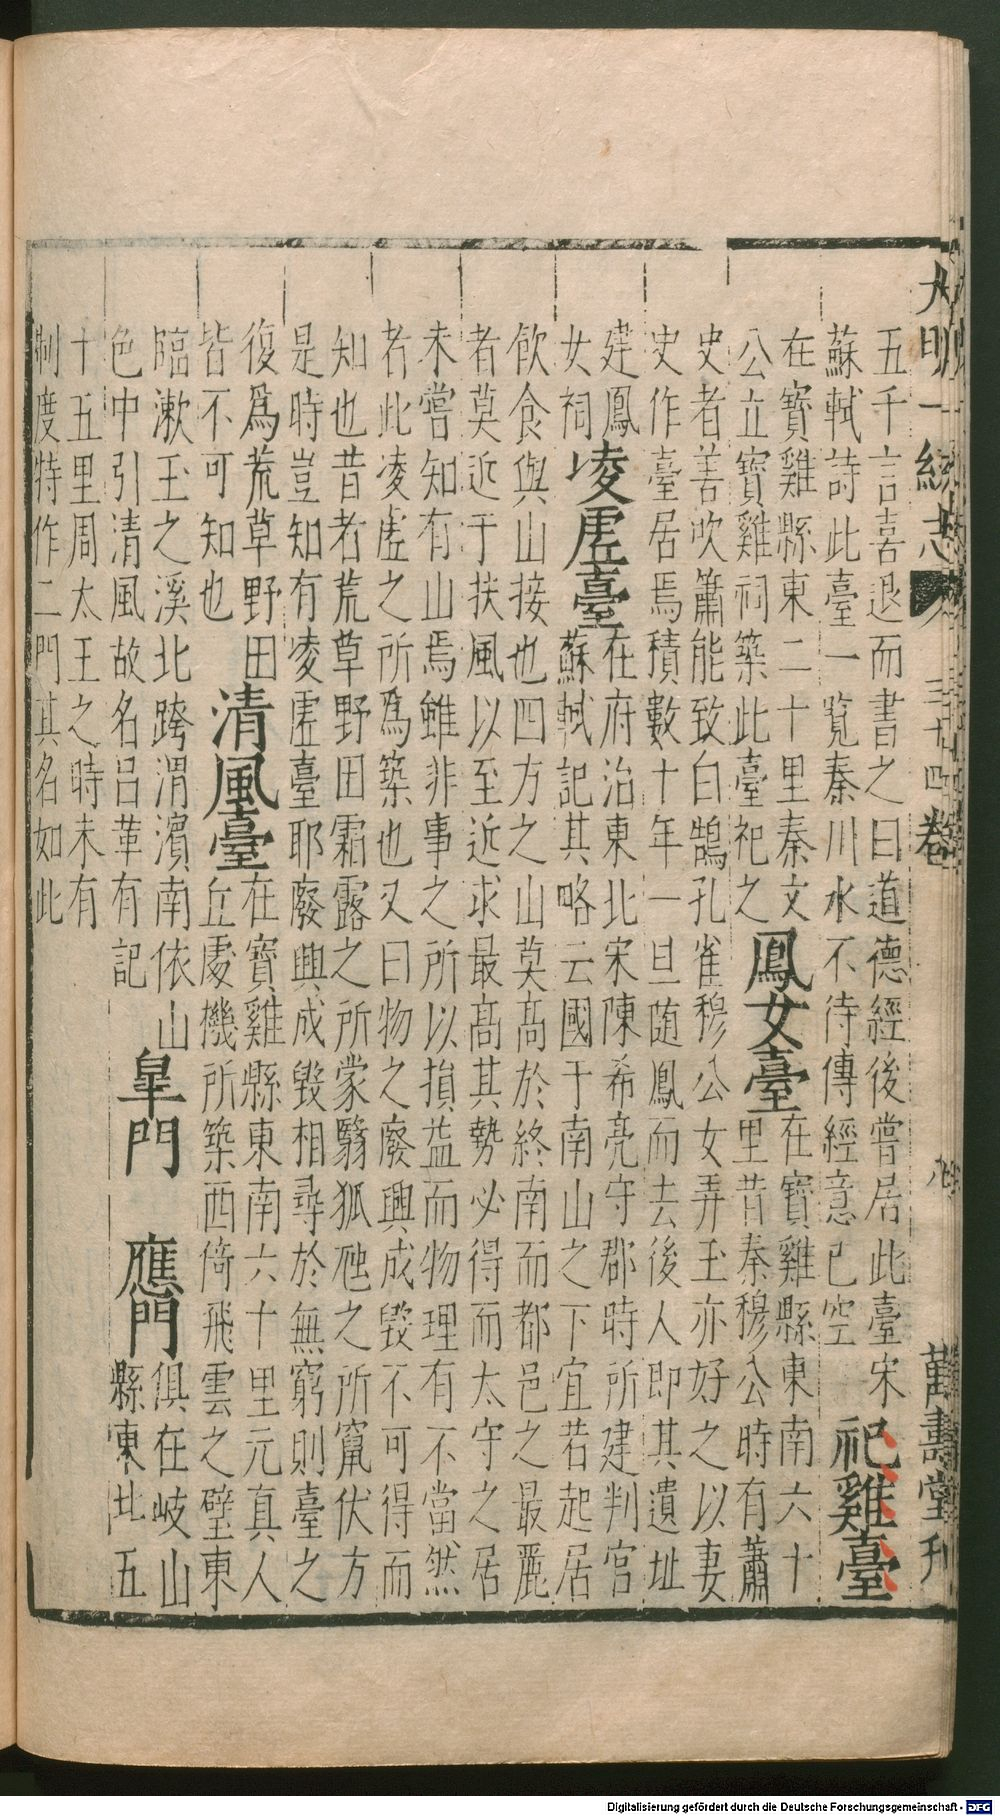 大明一統志 三十四卷 八 萬壽堂刊
五千言喜退而書之曰道德經後嘗居此臺宋
蘇軾詩此臺一覽秦川水不待傳經意已空
祀雞臺
在寶雞縣東二十里秦文
公立寶雞祠築此臺祀之
鳳女臺
在寶雞縣東南六十
里昔秦穆公時有蕭
史者善吹簫能致白鵠孔雀穆公女弄玉亦好之以妻
史作臺居焉積數十年一旦随鳳而去後人即其遺址
建鳳
女祠
凌虛臺
在府治東北宋陳希亮守郡時所建判官
蘇軾記其略云國于南山之下宜若起居
飲食與山接也四方之山莫高於終南而都邑之最麗
者莫近于扶風以至近求最高其勢必得而太守之居
未嘗知有山焉雖非事之所以損益而物理有不當然
者此凌虛之所爲築也又曰物之廢興成毀不可得而
知也昔者荒草野田霜露之所蒙翳狐虺之所竄伏方
是時豈知有凌虛臺耶廢興成毀相尋於無窮則臺之
復爲荒草野田
皆不可知也
清風臺
在寶雞縣東南六十里元真人
丘處機所築西倚飛雲之壁東
臨漱玉之溪北跨渭濱南依山
色中引清風故名呂革有記
皐門 應門
俱在岐山
縣東北五
十五里周太王之時未有
制度特作二門其名如此
Digitalisierung gefördert durch die Deutsche Forschungsgemeinschaft - DFG